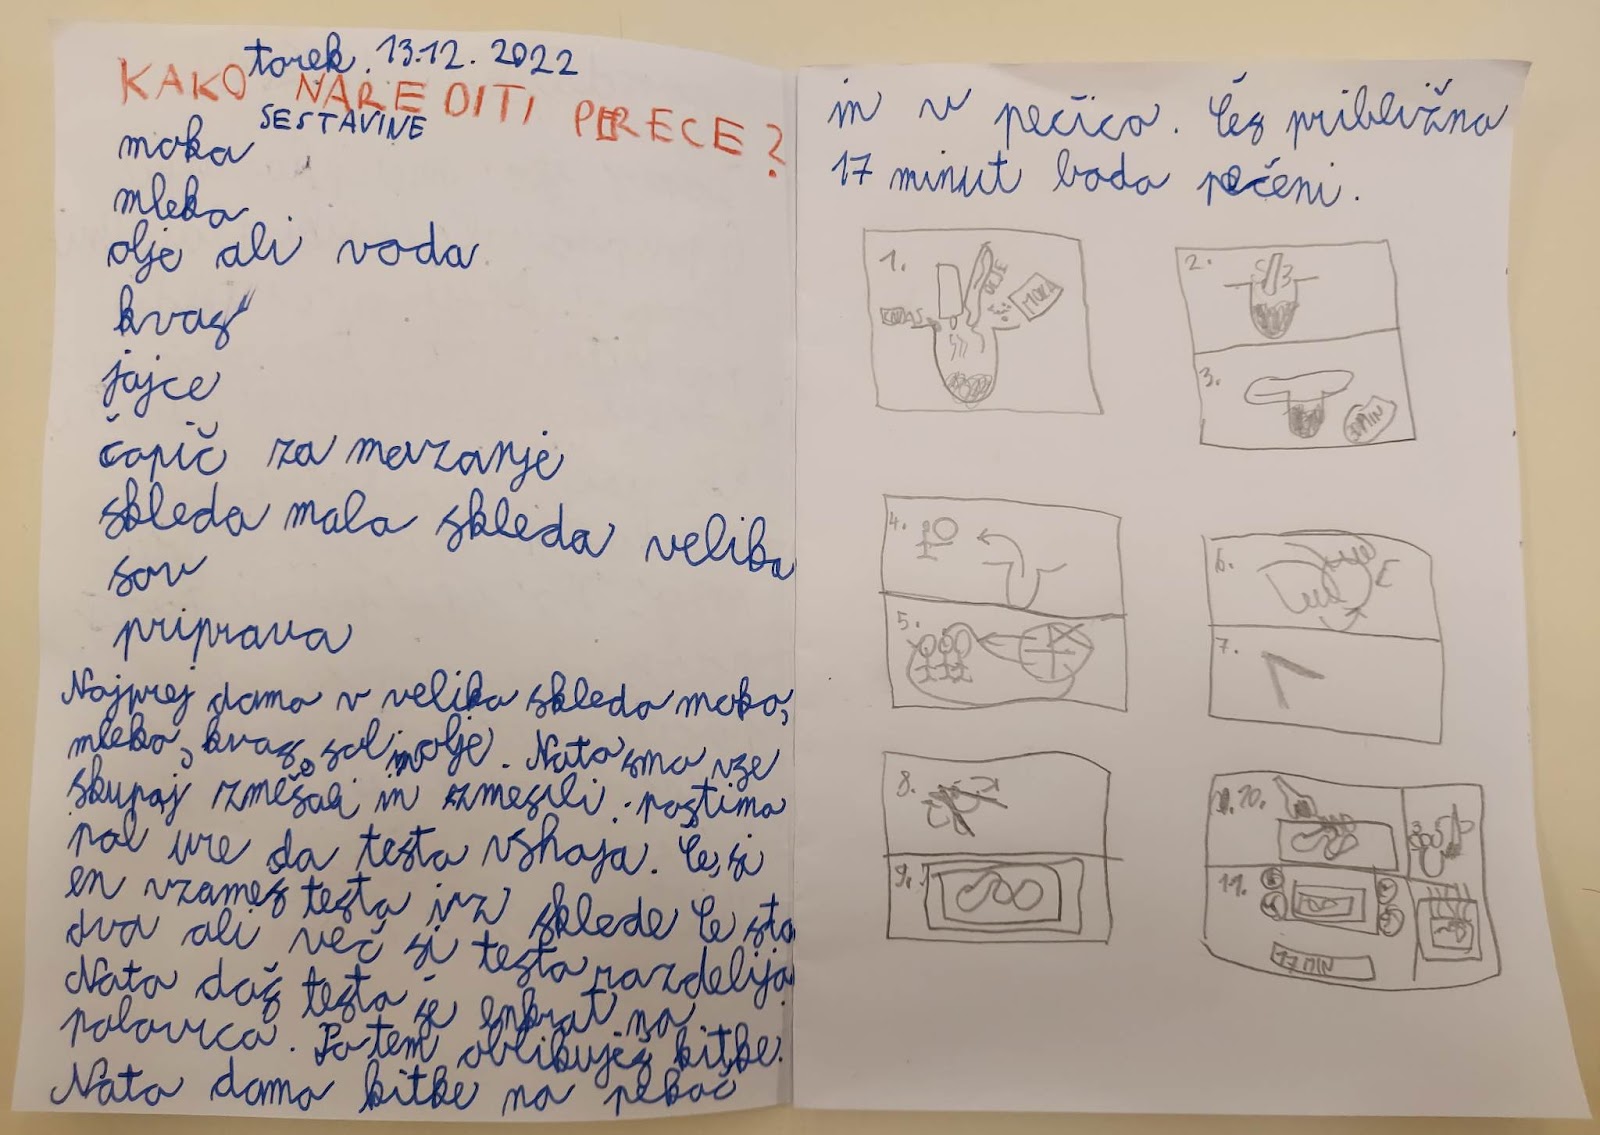 torek. 13.12.2022
KAKO NAREDITI PERECE?
SESTAVINE
moka
mleko
olje ali voda
kvas
jajce
čopič za mazanje
skleda mala skleda velika
sov
priprava
Najprej damo v veliko skledo moko,
mleko, kvas, sol in olje. Nato smo vze
skupaj zmešali in zmesili. postimo
pol ure da testo vzhaja. Če si
en vzames testo iz sklede če sta
dva ali več si testo razdelijo
Nato daš testo še enkrat na
polovico. Potem oblikuješ kitke.
Nato damo kitke na pekač
in v pečico. Čez približno
17 minut bodo pečeni.
1.
KVAS
OLJE
MOKA
2.
3.
30 MIN
4.
5.
6.
7.
8.
9.
10.
11.
17 MIN